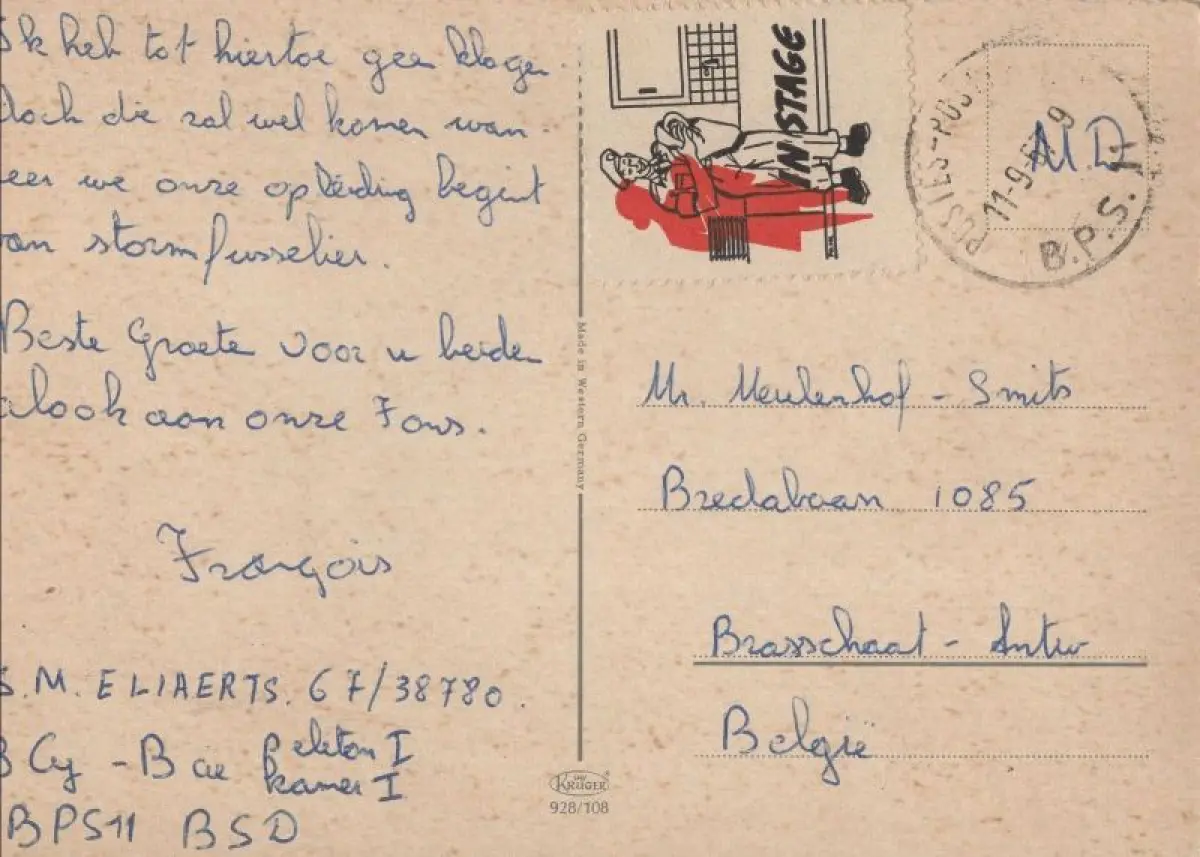 Ik heb tot hiertoe geen klagen
doch die zal wel komen wan-
eer we onze opleiding begint
van stormfusselier.
Beste Groete voor u beiden
alook aan onze Fons.
François
S.M. ELIAERTS. 67/38780.
B Cy - B cie peleton I
kamer I
BPS11 BSD
IN STAGE
POSTES-POS
11-9
9
B.P.S.
MD
Made in Western Germany
Mr. Meulenhof - Smits
Bredabaan 1085
Brasschaat - Antw
België
KRÜGER
928/108